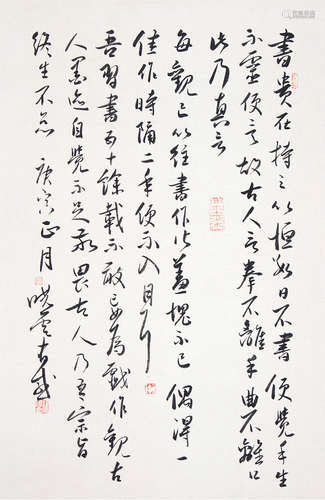 書贵在持之以恒數日不書便覺手生
不靈便言故古人言拳不離手曲不離口
此乃真言
每觀己以往書作皆羞愧不已偶得一
佳作時隔二年便不入目所
吾習書五十餘載不敢妄為戲作觀古
人墨迹自覺不足敬畏古人乃吾宗旨
終生不忘 庚寅正月 曉雲